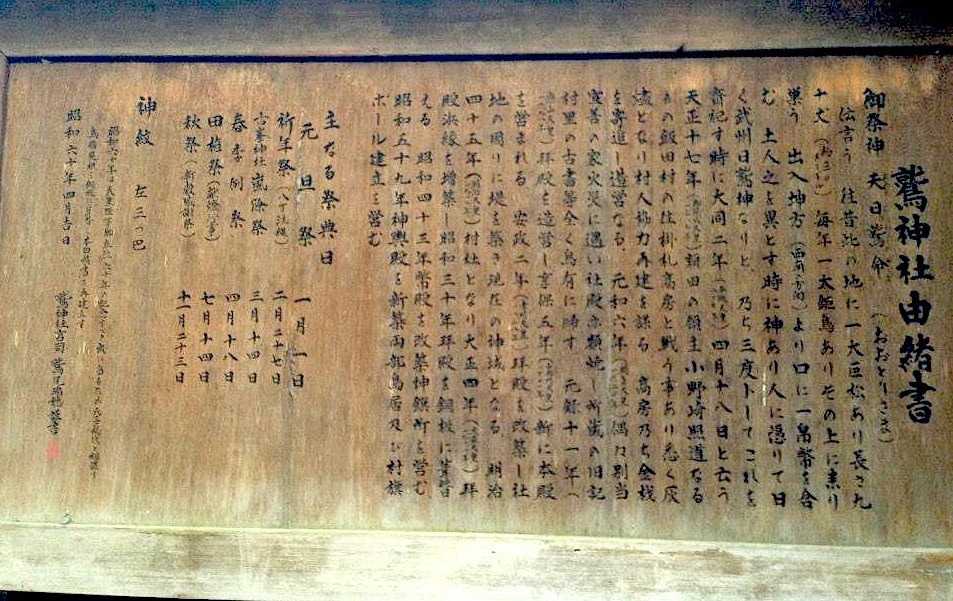 鷲神社由緒書
御祭神 天日鷲命 (おおとりさま)
伝言う 往昔此の地に一大巨松あり長さ九
十丈 毎年一太鉅鳥ありその上に来り
巣う 出入坤方(西南方向)より口に一帛幣を含
む 土人之を異とす時に神あり人に憑りて曰
く武州日鷲神なりと 乃ち三度トしてこれを
斎祀す時に大同二年 四月十八日と云う
天正十七年 額田の領主小野崎照道なる
もの飯田村の住掛札高房と戦う事あり悉く灰
燼となり村人協力再建を謀る 高房乃ち金銭
を寄進し造営なる 元和六年 偶々別当
宝善の家火災に遇い社殿亦類焼し所蔵の旧記
付里の古書等全く烏有に帰す 元録十一年
拝殿を造営し享保五年 新に本殿
を営まれる 安政二年 拝殿を改築し社
地の周りに堤を築き現在の神域となる 明治
四十五年 村社となり大正四年 拝
殿浜縁を増築し昭和三十年拝殿を銅板に葺替
える 昭和四十三年幣殿を改築神饌所を営む
昭和五十九年神輿殿を新築両部鳥居及び村旗
ポール建立を営む
主なる祭典日
元旦祭 一月一日
祈年祭 二月二十七日
古峯神社嵐除祭 三月十四日
春季例祭 四月十八日
田植祭 七月十四日
秋祭(新穀感謝祭) 十一月二十三日
神紋 左三つ巴
昭和六十年
昭和六十年四月吉日
鷲神社宮司